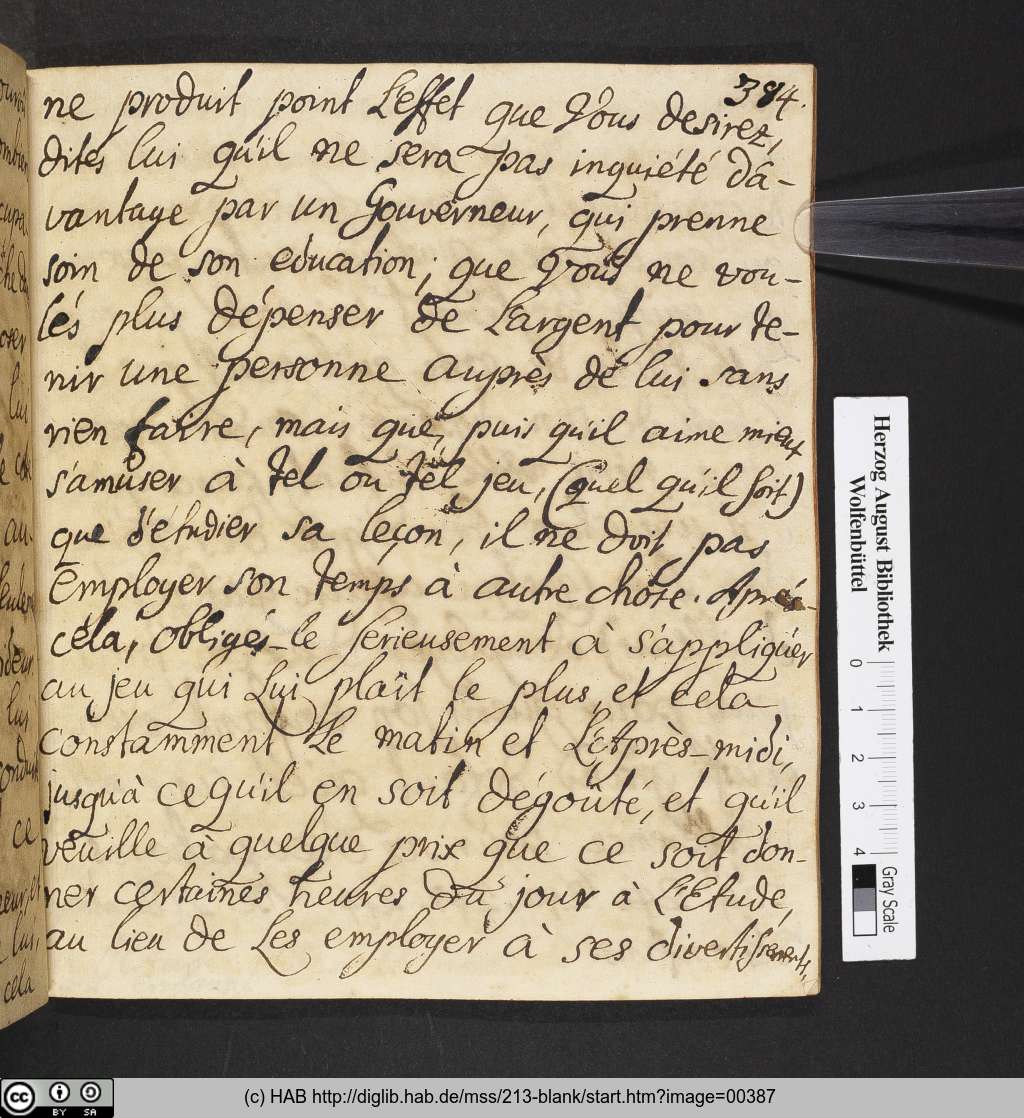 384.
ne produit point L'effet que Vous desirez,
dites lui qu'il ne sera pas inquiété dá-
vantage par un Gouverneur, qui prenne
soin de son education; que Vous ne vou-
lés plus dépenser de L'argent pour te-
nir une personne auprès de lui sans
rien faire, mais que, puis qu'il aime mieux
s'amuser à tel ou tel jeu, (quel qu'il soit)
que d'étudier sa leçon, il ne doit pas
employer son temps à autre chose. Aprés
céla, obligés-le serieusement à s'appliquer
au jeu qui Lui plaît le plus, et cela
constamment Le matin et L'Après-midi,
jusqu'à cequ'il en soit dégoûté, et qu'il
veuille à quelque prix que ce soit don-
ner certaines heures du jour à L'Etude,
au lieu de Les employer à ses divertissements,
lui
au-
lui
ce
cela
Herzog August Bibliothek
Wolfenbüttel
0 1 2 3 4
Gray Scale
cc BY SA
(c) HAB http://diglib.hab.de/mss/213-blank/start.htm?image=00387